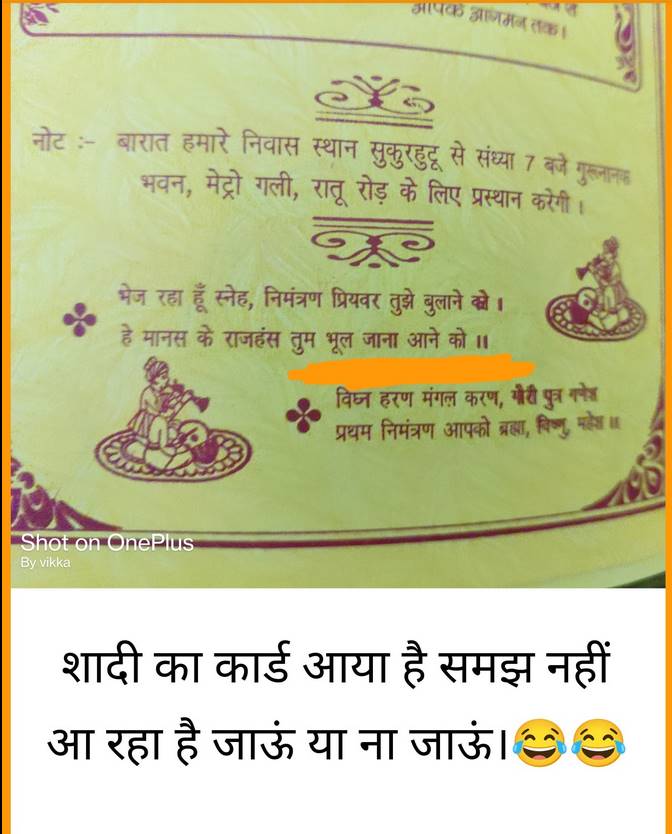 आपके आगमन तक।
नोट :- बारात हमारे निवास स्थान सुकुरहुटू से संध्या 7 बजे गुरूनानक
भवन, मेट्रो गली, रातू रोड़ के लिए प्रस्थान करेगी।
भेज रहा हूँ स्नेह, निमंत्रण प्रियवर तुझे बुलाने को।
हे मानस के राजहंस तुम भूल जाना आने को॥
विघ्न हरण मंगल करण, गौरी पुत्र गणेश
प्रथम निमंत्रण आपको ब्रह्मा, विष्णु, महेश॥
Shot on OnePlus
By vikka
शादी का कार्ड आया है समझ नहीं
आ रहा है जाऊं या ना जाऊं।😂😂